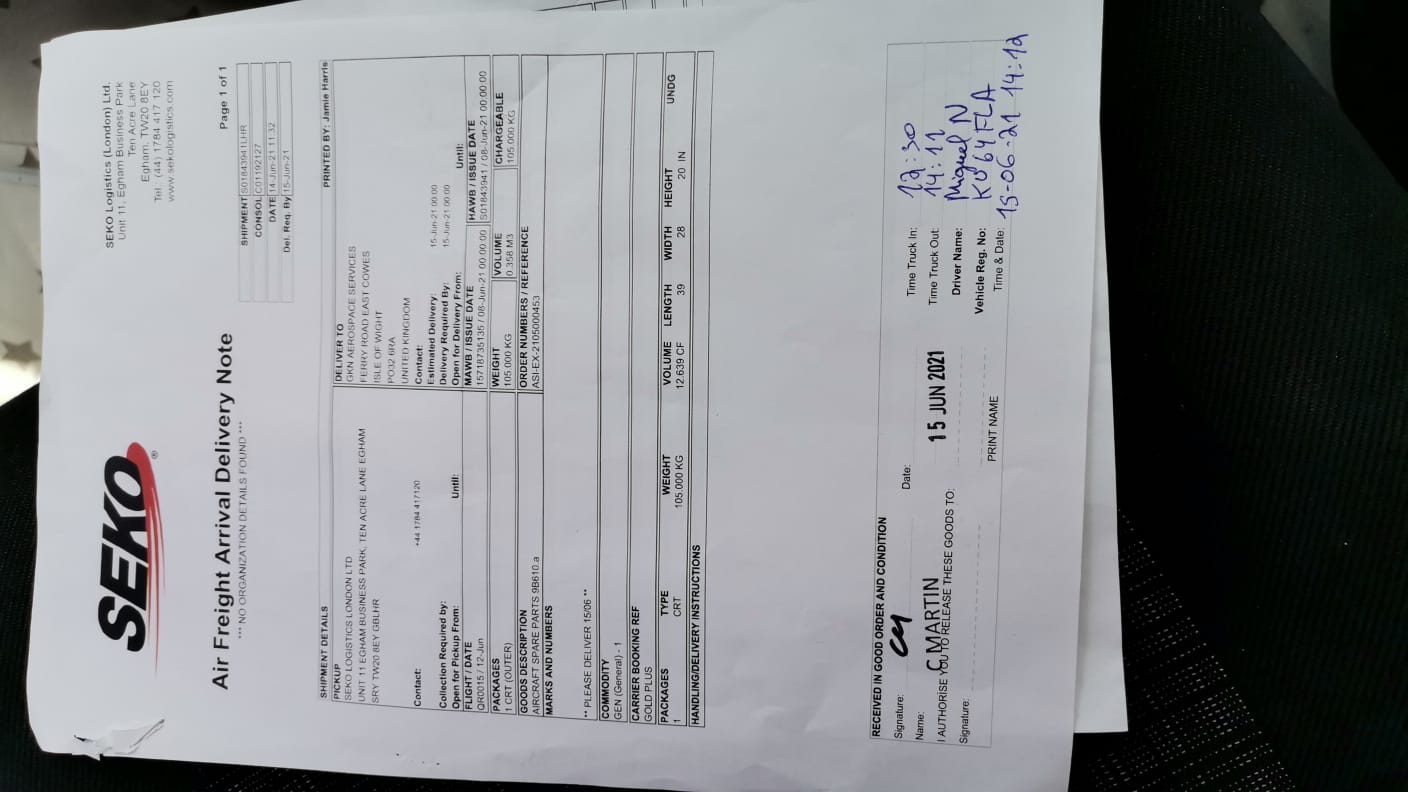 SEKO®
SEKO Logistics (London) Ltd.
Unit 11, Egham Business Park
Ten Acre Lane
Egham, TW20 8EY
Tel: (44) 1784 417 120
www.sekologistics.com
Air Freight Arrival Delivery Note
Page 1 of 1
*** NO ORGANIZATION DETAILS FOUND ***
SHIPMENT S01843941LHR
CONSOL C01192127
DATE 14-Jun-21 11:32
Del. Req. By 15-Jun-21
SHIPMENT DETAILS PRINTED BY: Jamie Harris
PICKUP
SEKO LOGISTICS LONDON LTD
UNIT 11 EGHAM BUSINESS PARK, TEN ACRE LANE EGHAM
SRY TW20 8EY GBLHR
Contact: +44 1784 417120
Collection Required by:
Open for Pickup From: Until:
DELIVER TO
GKN AEROSPACE SERVICES
FERRY ROAD EAST COWES
ISLE OF WIGHT
PO32 6RA
UNITED KINGDOM
Contact:
Estimated Delivery: 15-Jun-21 00:00
Delivery Required By: 15-Jun-21 00:00
Open for Delivery From: Until:
FLIGHT / DATE MAWB / ISSUE DATE HAWB / ISSUE DATE
QR0015 / 12-Jun 15718735135 / 08-Jun-21 00:00:00 S01843941 / 08-Jun-21 00:00:00
PACKAGES WEIGHT VOLUME CHARGEABLE
1 CRT (OUTER) 105.000 KG 0.358 M3 105.000 KG
GOODS DESCRIPTION ORDER NUMBERS / REFERENCE
AIRCRAFT SPARE PARTS 9B610.a ASI-EX-2105000453
MARKS AND NUMBERS
** PLEASE DELIVER 15/06 **
COMMODITY
GEN (General) - 1
CARRIER BOOKING REF
GOLD PLUS
PACKAGES TYPE WEIGHT VOLUME LENGTH WIDTH HEIGHT UNDG
1 CRT 105.000 KG 12.639 CF 39 28 20 IN
HANDLING/DELIVERY INSTRUCTIONS
RECEIVED IN GOOD ORDER AND CONDITION
Signature: Date: Time Truck In: 12:30
Name: C MARTIN 15 JUN 2021 Time Truck Out: 14:11
I AUTHORISE YOU TO RELEASE THESE GOODS TO: Driver Name: Miguel N
Signature: Vehicle Reg. No: KU64FLA
PRINT NAME Time & Date: 15-06-21 14:12